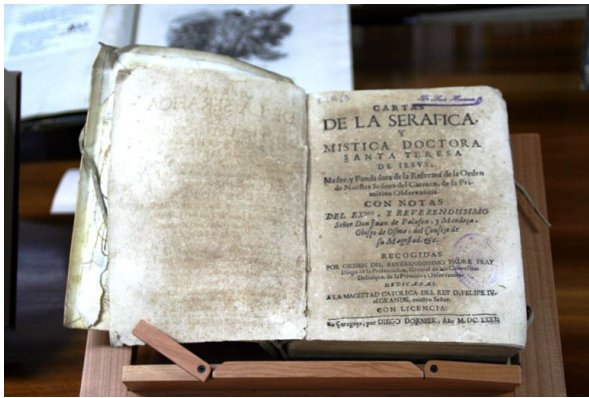 CARTAS
DE LA SERAFICA,
Y
MISTICA DOCTORA
SANTA TERESA
DE IESVS,
Madre, y Fundadora de la Reforma de la Orden
de Nuestra Señora del Carmen, de la Pri-
mitiva Observancia.
CON NOTAS
DEL EXMO, Y REVERENDISSIMO
Señor Don Juan de Palafox, y Mendoza,
Obispo de Osma, del Consejo de
su Magestad, &c.
RECOGIDAS
POR ORDEN DEL REVERENDISSIMO PADRE FRAY
Diego de la Presentacion, General de los Carmelitas
Descalços, de la Primitiva Observancia.
DEDICADAS
A LA MAGESTAD CATOLICA DEL REY D. FELIPE IV.
el GRANDE, nuestro Señor.
CON LICENCIA:
En Çaragoça, por DIEGO DORMER, Año M. DC.